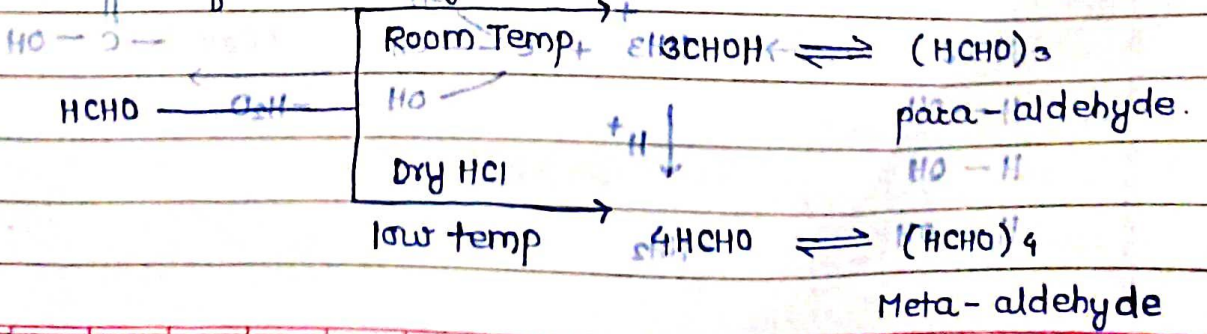 Room Temp, 3CHOH ⇌ (HCHO)3
HCHO
para-aldehyde.
Dry HCl
low temp 4HCHO ⇌ (HCHO)4
Meta-aldehyde